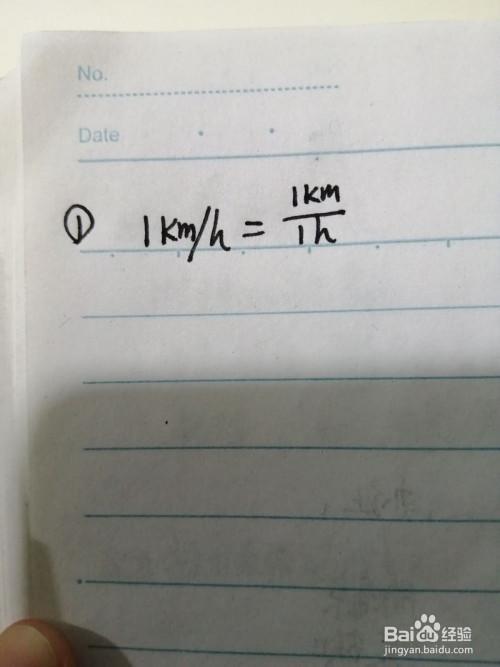 No.
Date
① 1km/h = 1km/1h
Bai du 经验
jingyan.baidu.com